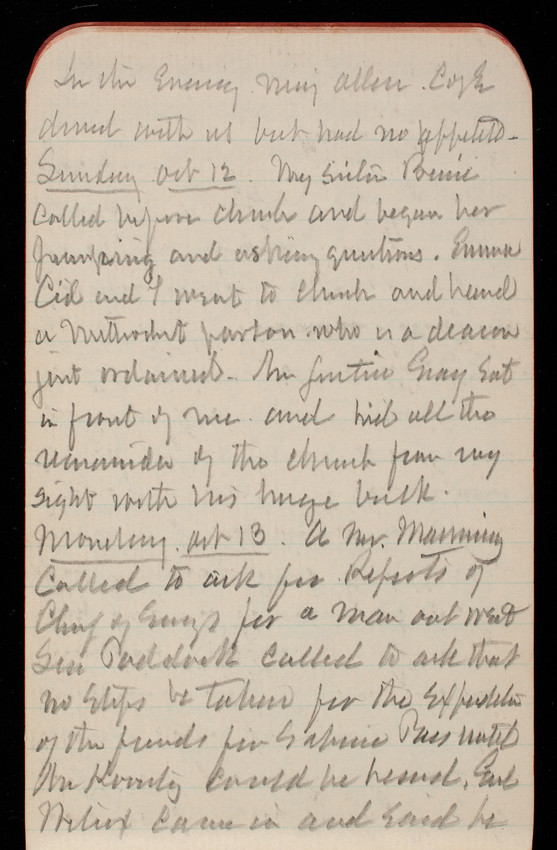 In the Evening Miss Allen. Coyle
dined with us but had no appetite.
Sunday Oct 12. My sister Bessie
called before church and began her
pumping and asking questions. Emma
Cid and I went to church and heard
a Methodist parson who is a deacon
just ordained. Mr Justice Gray sat
in front of me and hid all the
remainder of the church from my
sight with his huge bulk.
Monday. Oct 13. A Mr. Manning
Called to ask for Reports of
Chief of Engrs for a man out west
Gen Paddock called to ask that
no steps be taken for the Expenditure
of the funds for Sabine Pass until
Mr Kountz could be heard. Genl
Wilcox came in and said he